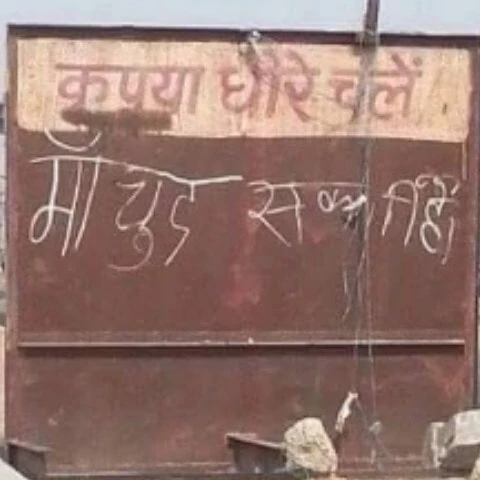 कृपया धीरे चलें
माँ चुद सकती है